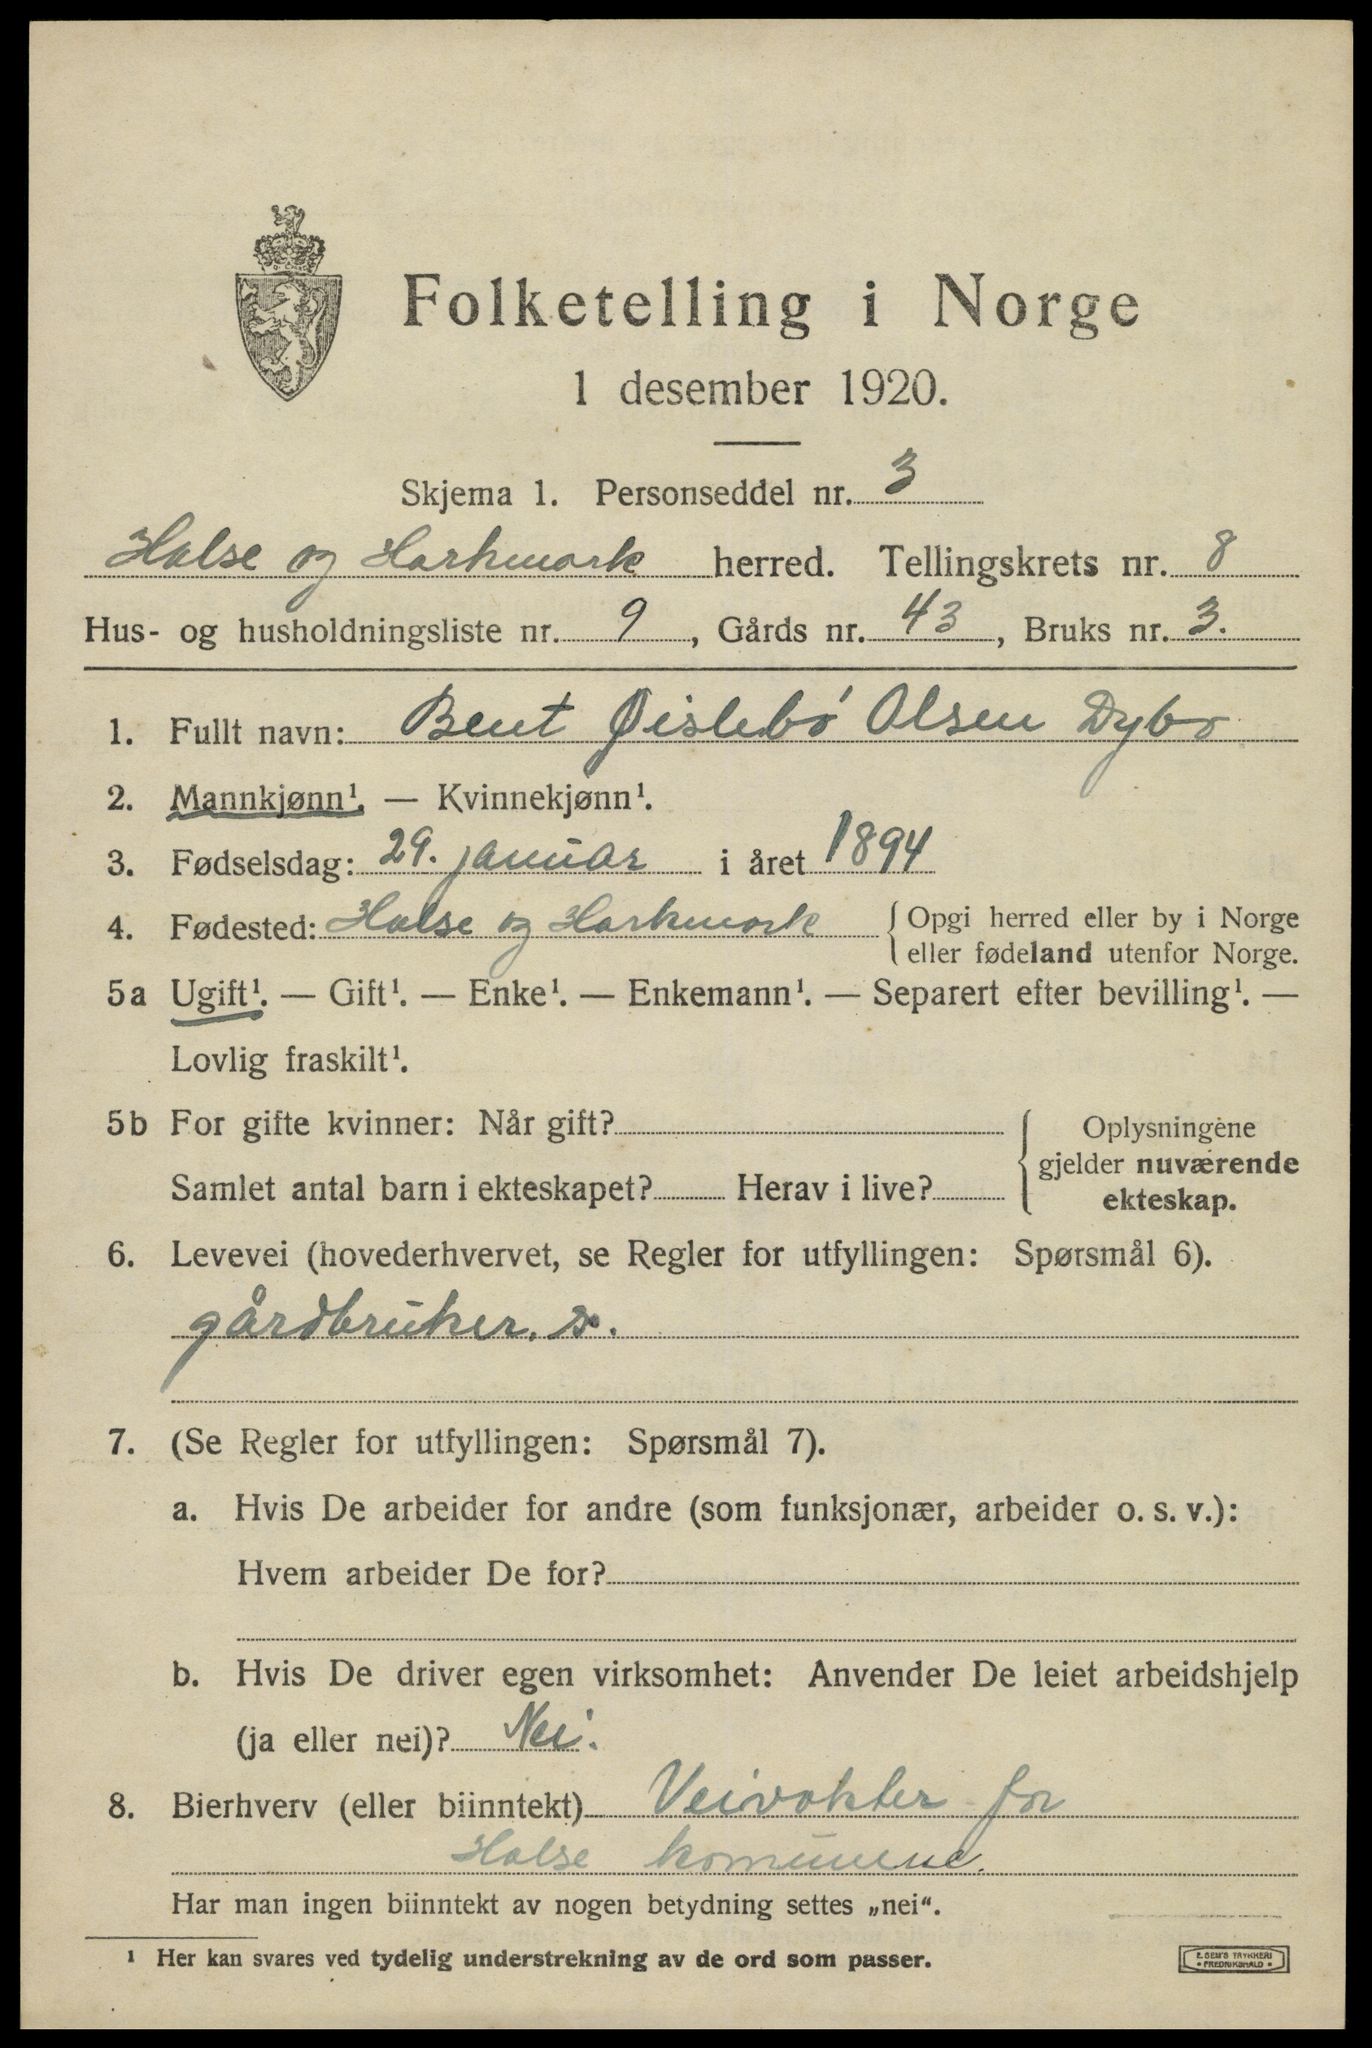 Folketelling i Norge
1 desember 1920.
Skjema 1. Personseddel nr. 3
Halse og Harkmark herred. Tellingskrets nr. 8
Hus- og husholdningsliste nr. 9, Gårds nr. 43, Bruks nr. 3.
1. Fullt navn: Bent Øislebö Olsen Dybo
2. Mannkjønn¹. — Kvinnekjønn¹.
3. Fødselsdag: 29. januar i året 1894
4. Fødested: Halse og Harkmark {Opgi herred eller by i Norge
eller fødeland utenfor Norge.
5a Ugift¹. — Gift¹. — Enke¹. — Enkemann¹. — Separert efter bevilling¹. —
Lovlig fraskilt¹.
5b For gifte kvinner: Når gift?
Samlet antal barn i ekteskapet? Herav i live?
Oplysningene
gjelder nuværende
ekteskap.
6. Levevei (hovederhvervet, se Regler for utfyllingen: Spørsmål 6).
gårdbruker. s.
7. (Se Regler for utfyllingen: Spørsmål 7).
a. Hvis De arbeider for andre (som funksjonær, arbeider o. s. v.):
Hvem arbeider De for?
b. Hvis De driver egen virksomhet: Anvender De leiet arbeidshjelp
(ja eller nei)? Nei.
8. Bierhverv (eller biinntekt) Veivokter for
Halse komunne.
Har man ingen biinntekt av nogen betydning settes „nei“.
¹ Her kan svares ved tydelig understrekning av de ord som passer.
E. SEM'S TRYKKERI
• FREDRIKSHALD •